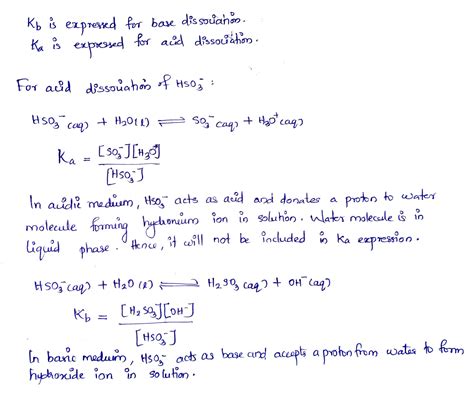 Kb is expressed for base dissociation.
Ka is expressed for acid dissociation.
For acid dissociation of HSO₃⁻ :
HSO₃⁻ (aq) + H₂O(l) ⇌ SO₃⁻ (aq) + H₃O⁺ (aq)
Ka = [SO₃⁻][H₃O⁺] / [HSO₃⁻]
In acidic medium, HSO₃⁻ acts as acid and donates a proton to water
molecule forming hydronium ion in solution. Water molecule is in
liquid phase. Hence, it will not be included in Ka expression.
HSO₃⁻ (aq) + H₂O (l) ⇌ H₂SO₃ (aq) + OH⁻ (aq)
Kb = [H₂SO₃][OH⁻] / [HSO₃⁻]
In basic medium, HSO₃⁻ acts as base and accepts a proton from water to form
hydroxide ion in solution.